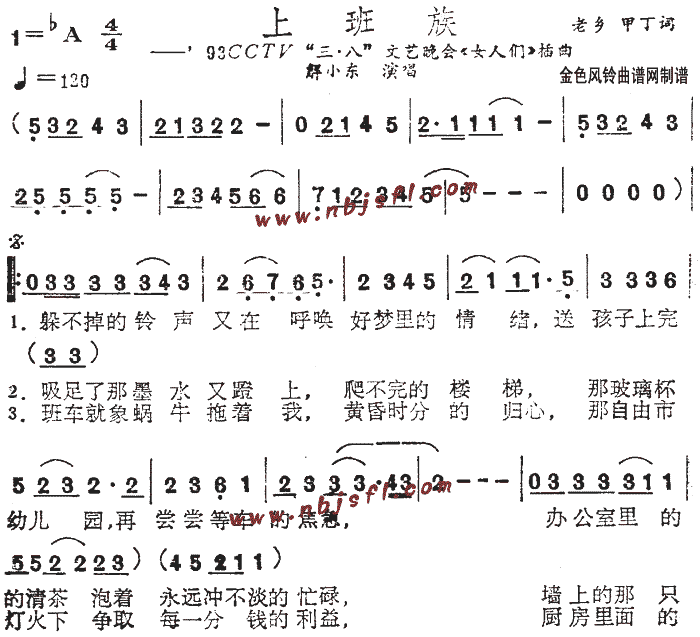 上班族
1=♭A 4/4
老乡 甲丁词
——’93CCTV“三·八”文艺晚会《女人们》插曲
♩=120
解小东 演唱
金色风铃曲谱网制谱
(5324 3 | 21322 - | 0 2145 | 2·1111 - | 5324 3 |
25555 - | 234566 | 7123455 - - | 0 0 0 0)
www.nbjsfl.com
033 33343 | 2 6765· | 2 345 | 21 11·5 | 3 3336
1. 躲不掉的铃声又在呼唤好梦里的情绪,送孩子上完
(33)
2. 吸足了那墨水又蹬上,爬不完的楼梯,那玻璃杯
3. 班车就象蜗牛拖着我,黄昏时分的归心,那自由市
5232·2 | 2361 | 2333·43 | 2 - - - | 03333311
www.nbjsfl.com
幼儿园,再尝尝等车的焦急,办公室里的
552223) (45211)
的清茶泡着永远冲不淡的忙碌,墙上的那只
灯火下争取每一分钱的利益,厨房里面的